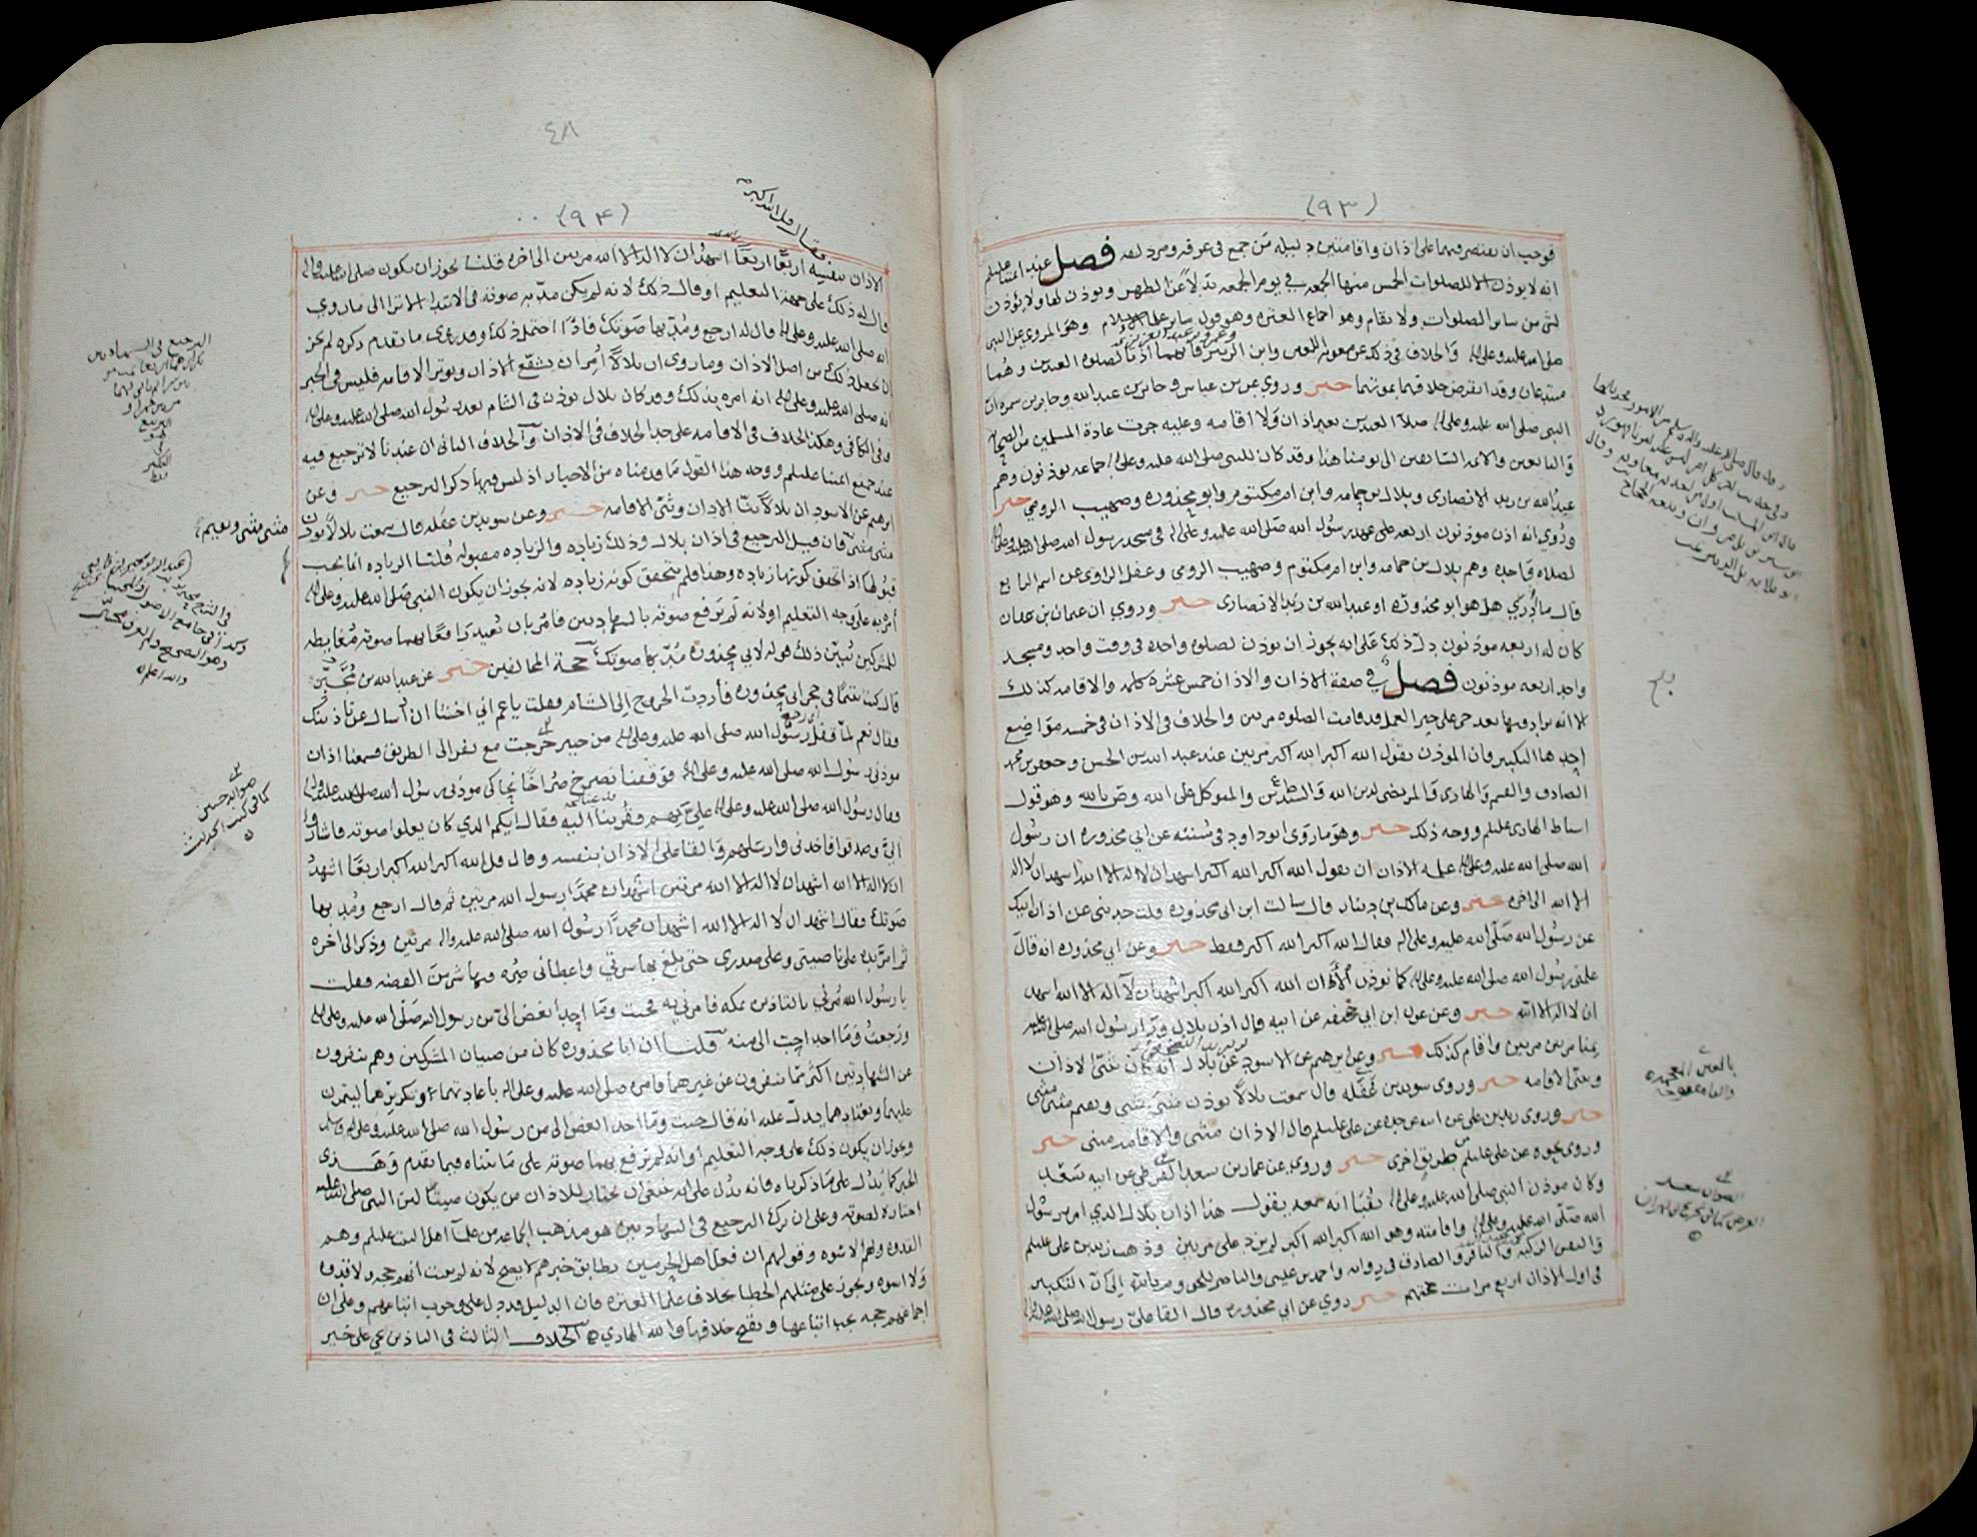 (٩٣)
فوجب ان يقتصر فيهما على اذان واقامتين دليله مَن جمع في عرفه ومزدلفه فصل عند ائمتنا عليلم
انه لا يوذن الا للصلوات الخمس منها الجمعه في يوم الجمعه بدلاً عن الظهر ويوذن لها ولا يؤذن
لشي من ساير الصلوات ولا يقام وهو اجماع العتره وهو قول ساير علما الاسلام وهو المروي عن النبي
صلى الله عليه وعلى اله والخلاف في ذلك عن معويه اللعين وابن الزبير فانهما اذنا لصلوه العيدين وهُما
وعمر بن عبد العزيز
مبتدعان وقد انقرض خلافهما بموتهما خبر وروي عن بن عباس وجابر بن عبد الله وجابر بن سمره ان
النبي صلى الله عليه وعلى اله صلا العيدين بغير اذان ولا اقامه وعليه جرت عادة المسلمين من الصحابه
والتابعين والائمه السابقين الى يومنا هذا وقد كان للنبي صلى الله عليه وعلى اله جماعه يوذنون وهم
عبد الله بن زيد الانصاري وبلال بن حمامه وابن ام مكتوم وابو محذوره وصهيب الرومي خبر
ورُوي انه اذن موذنون اربعه على عهد رسُول الله صلى الله عليه وعلى اله في مسجد رسول الله صلى الله عليه وعلى اله
لصلاه واحده وهم بلال بن حمامه وابن ام مكتوم وصهيب الرومي وغفل الراوي عن اسم الرابع
قال ما اَدْري هل هو ابو محذوره او عبد الله بن زيد الانصاري خبر وروي ان عثمان بن عفان
كان له اربعه موذنون دل ذلك على انه يجوز ان يوذن لصلوه واحده في وقت واحد ومسجد
واحد اربعه موذنون فصل في صفة الاذان والاذان خمس عشره كلمه والاقامه كذلك
الا انه يزاد فيها بعد حي على خير العمل قد قامت الصلوه مرتين والخلاف في الاذان في خمسه مواضع
احدها التكبير فان الموذن يقول الله اكبر الله اكبر مرتين عند عبد الله بن الحسن وجعفر بن محمد
الصادق والقسم والهادي والمرتضى لدين الله والسيدين والمتوكل على الله وص بالله وهو قول
اسباط الهادي عليلم ووجه ذلك خبر وهو ما روى ابو داود في سُننه عن ابي محذوره ان رسُول
الله صلى الله عليه وعلى اله علمه الاذان ان يقول الله اكبر الله اكبر اشهد ان لا اله الا الله اشهد ان لا اله
الا الله الى اخره خبر وعن مالك بن دينار قال سالت ابن ابي محذوره قلت حدثني عن اذان ابيك
عن رسُول الله صلى الله عليه وعلى اله فقال الله اكبر الله اكبر فقط خبر وعن ابي محذوره انه قال
علمني رسُول الله صلى الله عليه وعلى اله كما توذن الان الله اكبر الله اكبر اشهد ان لا اله الا الله اشهد
ان لا اله الا الله خبر وعن عون ابن ابي جحيفه عن ابيه قال اذن بلال ورا رسُول الله صلى الله عليه
بمنا مرتين مرتين واقام كذلك خبر وعن ابرهيم عن الاسود عن بلال انه كان يثني الاذان
ويثني الاقامه خبر وروى سويد بن غفله قال سمعت بلالاً يوذن مثنى مثنى ويقيم مثنى مثنى
خبر وروى زيد بن علي عن ابيه عن جده عن علي عليلم قال الاذان مثنى والاقامه مثنى خبر
وروي نحوه عن علي عليلم من طريق اخرى خبر وروي عن عمار بن سعد القرظي عن ابيه سَعْدٍ
وكان موذن النبي صلى الله عليه وعلى اله بقُبا انه سمعه يقول هذا اذان بلال الذي امر رسُول
الله صلى الله عليه وعلى اله واقامته وهو الله اكبر الله اكبر لم يزد على مرتين وذهب زيد بن علي عليلم
والنفس الزكيه والباقر والصادق في روايه واحمد بن عيسى والناصر للحق وم بالله الى ان التكبير
في اول الاذان اربع مرات حجتهم خبر روي عن ابي محذوره قال القا علي رسُول الله صلى الله عليه وعلى اله
بلغ
بالغين المعجمه
والفا مفتوحه
الصواب سعد
القرض
٤٨
(٩۴)
فقال قل الله اكبر
الاذان بنفسه اربعًا اربعًا اشهد ان لا اله الا الله مرتين الى اخره قلنا يجوز ان يكون صلى الله عليه واله
قال له ذلك على جهة التعليم او قال ذلك لانه لم يكن مدّ به صوته في الابتدا الا ترا الى ما روي
انه صلى الله عليه وعلى اله قال له ارجع ومُدّ بها صَوتك فاذا احتمل ذلك وقد روي ما تقدم ذكره لم يجز
ان يجعل ذلك من اصل الاذان وما روي ان بلالاً اُمِر ان يشفع الاذان ويوتر الاقامه فليس في الخبر
انه صلى الله عليه وعلى اله امره بذلك وقد كان بلال يوذن في الشام بعد رسُول الله صلى الله عليه وعلى اله
وفي الكافي وهكذا الخلاف في الاقامه على حد الخلاف في الاذان والخلاف الثاني ان عندنا لا ترجيع فيه
عند جميع ائمتنا عليلم ووجه هذا القول ما قدمناه من الاخبار اذ ليس فيها ذكر الترجيع خبر وعن
ابرهيم عن الاسود ان بلالاً ثنّا الاذان وثنّى الاقامه خبر وعن سويد بن غفله قال سمعت بلالاً يوذن
مثنى مثنى فان قيل الترجيع في اذان بلال وذلك زياده والزياده مقبوله قلنا الزياده انما يجب
قبُولها اذا تحقق كونها زياده وهذا فلم يتحقق كونه زياده لانه يجوز ان يكون النبي صلى الله عليه وعلى اله
أمر به على وجه التعليم او لانه لم يَرفع صَوته بالشهادتين فامُر بان يُعيد رافعًا بهما صوته مُغايظه
للمشركين يُبيّن ذلك قوله لابي محذوره مُدّ بها صوتك حجة المخالفين خبر عن عبد الله بن مُحَيريز
قال كنت يتيمًا في حجر ابي محذوره فأردت الخروج الى الشام فقلت يا عم اني اخشا ان اُسال عن تاذينك
فقال نعم لمّا قفل رسُول الله صلى الله عليه وعلى اله من خيبر خرجت مع نفر الى الطريق فسمعنا اذان
موذن رسُول الله صلى الله عليه وعلى اله فوقفنا نصرخ صُراخًا نحاكي موذن رسُول الله صلى الله عليه وعلى اله
فقال رسُول الله صلى الله عليه وعلى اله عليّ بهم فقُربنا اليه فقال ايكم الذي كان يعلوا صوته فاشاروا
اليَّ وصدقوا فاخذني وارسَلهم والقا عليَّ الاذان بنفسه وقال قل الله اكبر الله اكبر اربعًا اشهدُ
ان لا اله الا الله اشهد ان لا اله الا الله مرتين اشهد ان محمدًا رسول الله مرتين ثم قال ارجع ومُد بها
صَوتك فقال اشهد ان لا اله الا الله اشهد ان محمدًا رسُول الله صلى الله عليه واله مرتين وذكر الى اخره
ثم امرّ يده على ناصيتي وعلى صدري حتى بلغ بها سرتي واعطاني صُره فيها شي من الفضه فقلت
يا رسُول الله مُرني بالتاذين بمكه فامرني به فجئت وما احدٌ أبغض اليّ من رسول الله صلى الله عليه وعلى اله
ورَجعتُ وما احد احب الي منه قلنا ان ابا محذوره كان من صبيان المشركين وهم ينفرون
عن الشهادتين اكثر مما ينفرون عن غيرهما فامره صلى الله عليه وعلى اله باعادتهما وتكريرهما ليتمرن
عليهما ويعتادهما يدلّ عليه انه قال جئت وما احد ابغض الي من رسُول الله صلى الله عليه وعلى اله وسلم
ويجوز ان يكون ذلك على وجه التعليم او انه لم يَرفع بهما صوته على ما بيّناه فيما تقدم وهذا
الخبر كما يَدُل على ما ذكرناه فانه يدُل على انه ينبغي ان يختار للاذان من يكون صَيّتًا لان النبي صلى الله عليه
اختاره لصوته وعلى ان ترك الترجيع في الشهادتين هو مذهب الجماعه من علما اهل البيت عليلم وهم
القدوه ولهم الاسوه وقولهم ان فعل اهل الحرمين يطابق خبرهم لا يصح لانه لم يثبت انهم حجه ولا قدوه
ولا اسوه ويجوز على مثلهم الخطا بخلاف علما العتره فان الدليل قد دل على وجوب اتباعهم وعلى ان
اجماعهم حجه يجب اتباعها ويقبح خلافها والله الهادي الخلاف الثالث في التاذين بحي على خير
الترجيع في الشهادتين
مثنى مثنى ويقيم
وهو الصحيح
والله اعلم
صوابه حسين
كما في كتب الحديث